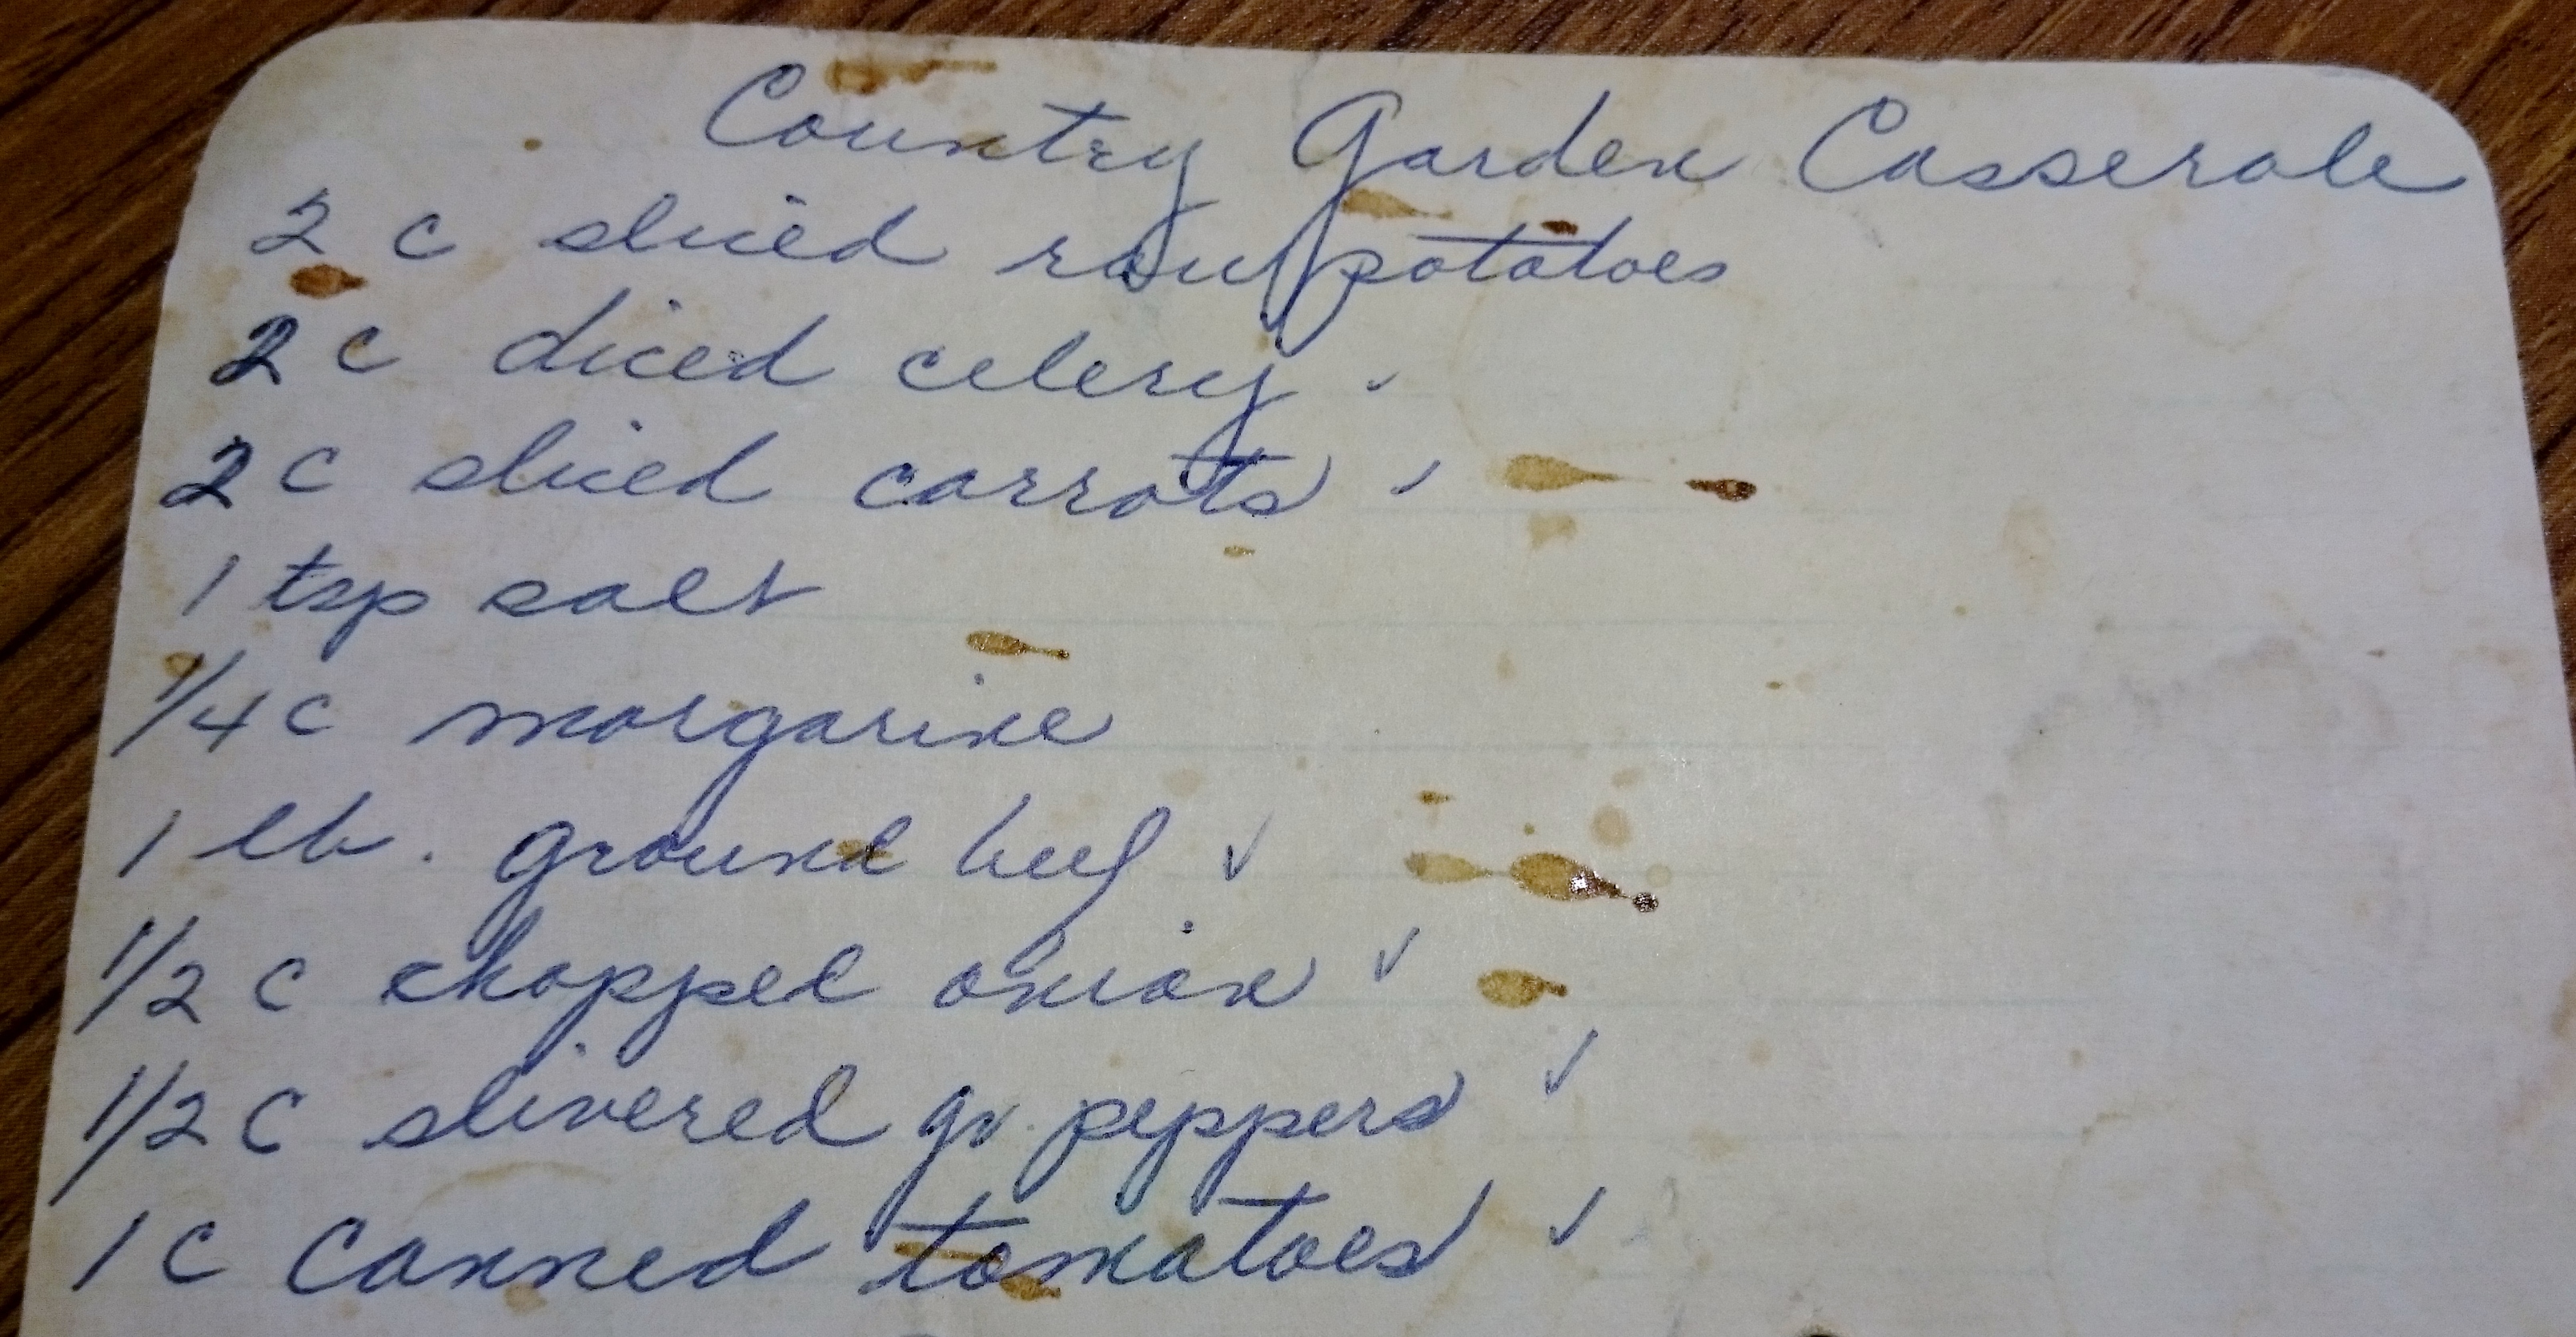 Country Garden Casserole
2 c sliced raw potatoes
2 c diced celery ✓
2 c sliced carrots ✓
1 tsp salt
1/4 c margarine
1 lb. ground beef ✓
1/2 c chopped onion ✓
1/2 c slivered gr. peppers ✓
1 c canned tomatoes ✓